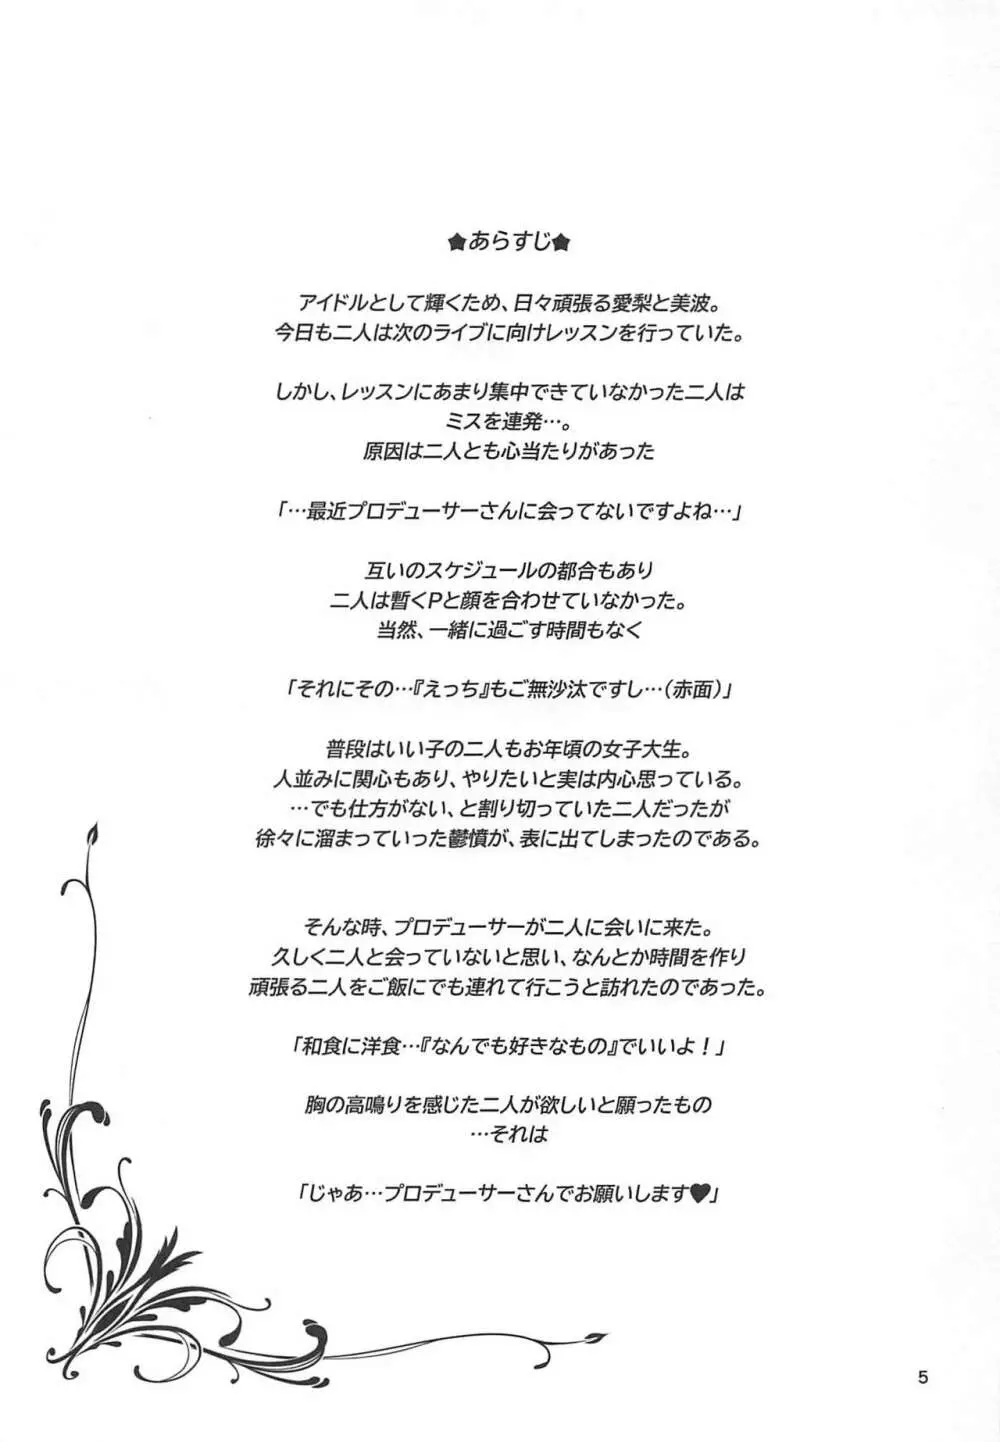 ★あらすじ★
アイドルとして輝くため、日々頑張る愛梨と美波。
今日も二人は次のライブに向けレッスンを行っていた。
しかし、レッスンにあまり集中できていなかった二人は
ミスを連発…。
原因は二人とも心当たりがあった
「…最近プロデューサーさんに会ってないですよね…」
互いのスケジュールの都合もあり
二人は暫くPと顔を合わせていなかった。
当然、一緒に過ごす時間もなく
「それにその…『えっち』もご無沙汰ですし…（赤面）」
普段はいい子の二人もお年頃の女子大生。
人並みに関心もあり、やりたいと実は内心思っている。
…でも仕方がない、と割り切っていた二人だったが
徐々に溜まっていった鬱憤が、表に出てしまったのである。
そんな時、プロデューサーが二人に会いに来た。
久しく二人と会っていないと思い、なんとか時間を作り
頑張る二人をご飯にでも連れて行こうと訪れたのであった。
「和食に洋食…『なんでも好きなもの』でいいよ！」
胸の高鳴りを感じた二人が欲しいと願ったもの
…それは
「じゃあ…プロデューサーさんでお願いします♥」
5